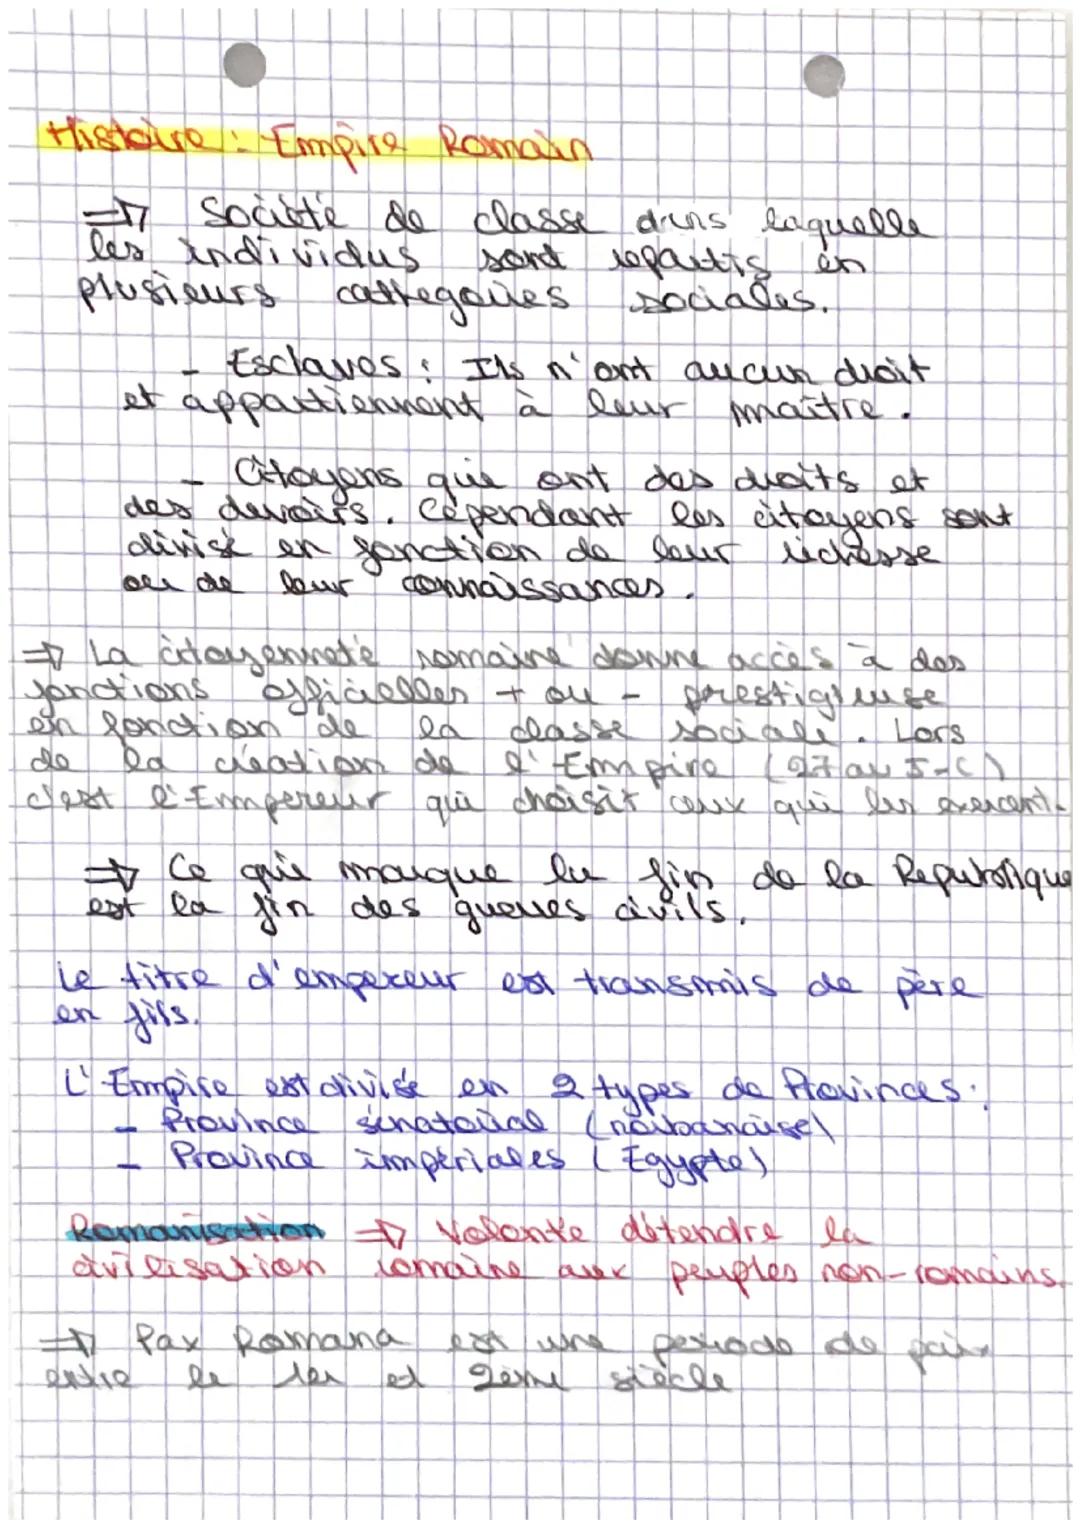 Histoire : Empire Romain
=> Société de classe dans laquelle
les individus sont repartis en
plusieurs cattegories sociales.
- Esclaves : Ils n'ont aucun droit
et appartiennent à leur maître.
- Citoyens qui ont des droits et
des devoirs. Cependant les citoyens sont
divisé en fonction de leur richesse
ou de leur connaissances.
=> La citoyenneté romaine donne accès à des
fonctions officielles + ou - prestigieuse
en fonction de la classe sociale. Lors
de la création de l'Empire (27 av J-C)
c'est l'Empereur qui choisit ceux qui les exercent.
=> Ce qui marque la fin de la Republique
est la fin des guerres civils.
Le titre d'empereur est transmis de père
en fils.
L'Empire est divisé en 2 types de Provinces :
- Province sénatorial (narbonaise)
- Province impériales (Egypte)
Romanisation => Volonte détendre la
civilisation romaine aux peuples non-romains.
=> Pax Romana est une periode de paix
entre le 1er et 2ème siècle